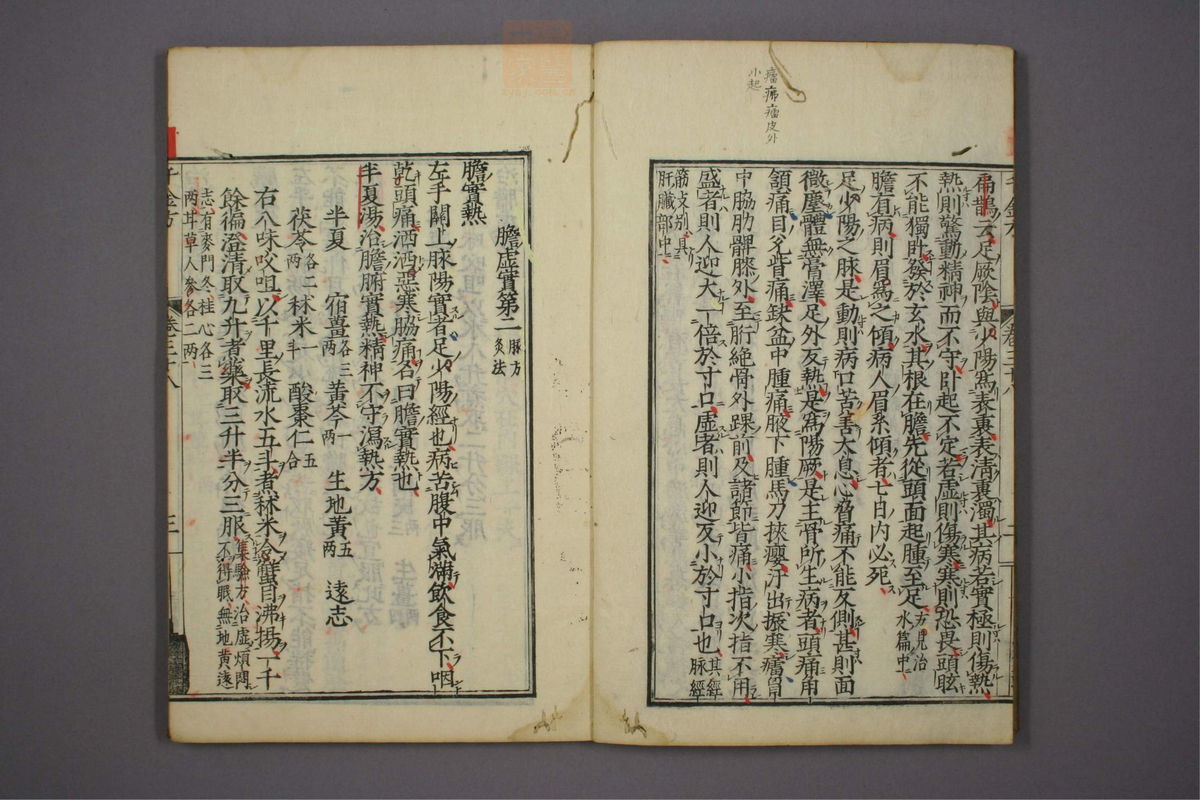 瘤疿瘤皮外
小起
扁鵲云足厥陰與少陽爲表裏表清裏濁其病若實極則傷熱
熱則驚動精神而不守卧起不定若虛則傷寒寒則恐畏頭眩
不能獨卧發於玄水其根在膽先從頭面起腫至足方見治水篇中
膽有病則眉爲之傾病人眉系傾者七日內必死
足少陽之脉是動則病口苦善太息心脅痛不能反側甚則面
微塵體無膏澤足外反熱是爲陽厥是主骨所生病者頭痛角
頷痛目兌眥痛缺盆中腫痛腋下腫馬刀挾癭汗出振寒瘧胷
中脇肋髀膝外至胻絶骨外踝前及諸節皆痛小指次指不用
盛者則人迎大一倍於寸口虛者則人迎反小於寸口也其經脉經
筋支别具
肝臟部中
卷二十八
膽虛實第二脉方灸法
膽實熱
左手關上脉陽實者足少陽經也病苦腹中氣滿飲食不下咽
乾頭痛洒洒惡寒脇痛名曰膽實熱也
半夏湯治膽腑實熱精神不守瀉熱方
半夏 宿薑各三兩 黃芩一兩 生地黃五兩 遠志
茯苓各二兩 秫米一斗 酸棗仁五合
右八味㕮咀以千里長流水五斗煮秫米令蟹目沸揚一千
餘徧澄清取九升煮藥取三升半分三服集驗方治虛煩悶不得眠無地黃遠
志有麥門冬桂心各三
兩甘草人參各二兩
千金方
三